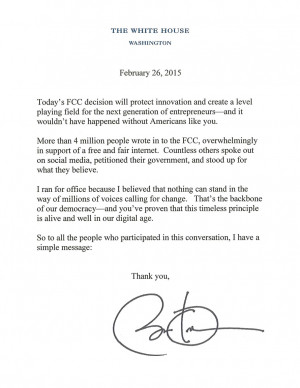 THE WHITE HOUSE
WASHINGTON
February 26, 2015
Today's FCC decision will protect innovation and create a level
playing field for the next generation of entrepreneurs—and it
wouldn't have happened without Americans like you.
More than 4 million people wrote in to the FCC, overwhelmingly
in support of a free and fair internet. Countless others spoke out
on social media, petitioned their government, and stood up for
what they believe.
I ran for office because I believed that nothing can stand in the
way of millions of voices calling for change. That's the backbone
of our democracy—and you've proven that this timeless principle
is alive and well in our digital age.
So to all the people who participated in this conversation, I have a
simple message:
Thank you,